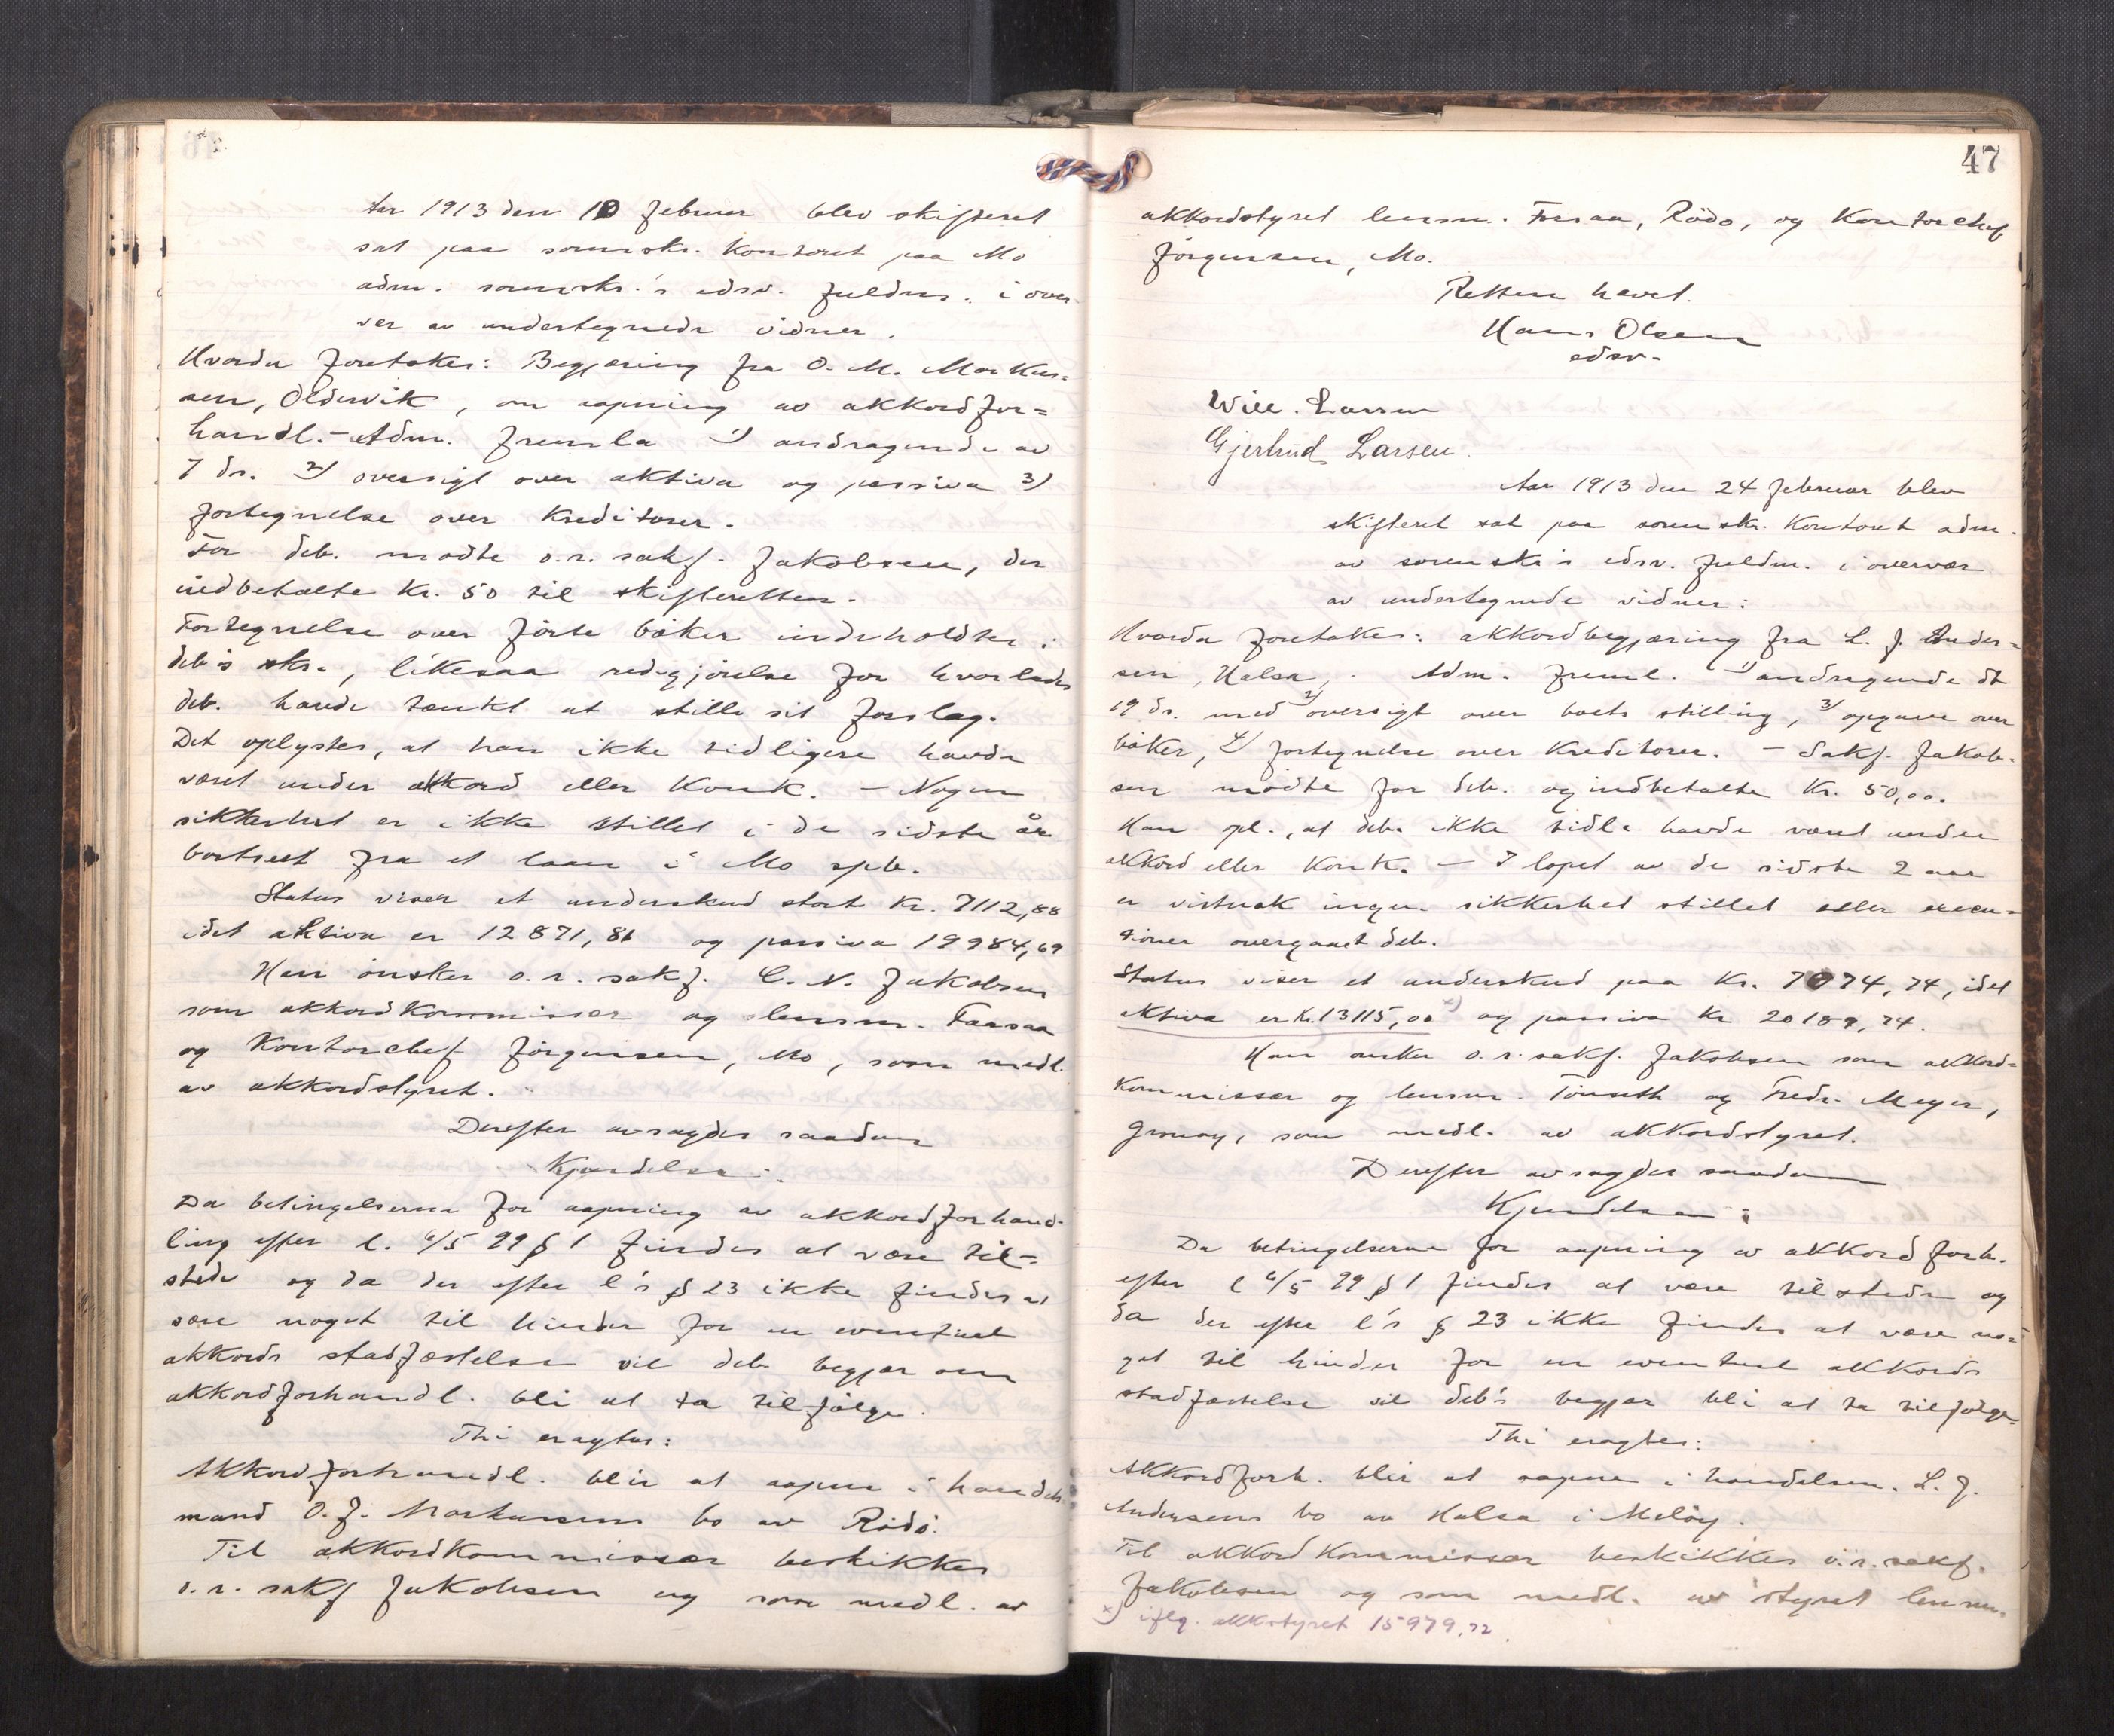 Aar 1913 den 10 februar blev skifteret
sat paa sorenskr. kontoret paa Mo
adm. sorenskr.'s edsv. fuldm. i over-
vær av undertegnede vidner.
Hvorda foretokes: Begjæring fra O. M. Markus=
sen, Oldervik, om aapning av akkordfor=
handl. – Adm. fremla 1) andragende av
7 ds. 2) oversigt over aktiva og passiva 3)
fortegnelse over kreditorer.
For deb. mødte o.r. sakf. Jakobsen, der
indbetalte kr. 50 til skifteretten.
Fortegnelse over førte bøker indeholdtes i
deb's skr., likesaa redegjørelse for hvorledes
deb. havde tænkt at stille sit forslag.
Det oplystes, at han ikke tidligere havde
været under akkord eller konk. – Nogen
sikkerhet er ikke stillet i de sidste år
bortseet fra et laan i Mo spb.
Status viser et underskud stort kr. 7112,88
idet aktiva er 12871,81 og passiva 19984,69
Han ønsker o.r. sakf. C. N. Jakobsen
som akkordkommissær og lensm.
og kontorchef Jörgensen, Mo, som medl.
av akkordstyret.
Derefter avsagdes saadan
Kjendelse:
Da betingelserne for aapning av akkordforhand-
ling efter l. 6/5 99 § 1 findes at være til=
stede og da der efter l's § 23 ikke findes at
være noget til hinder for en eventuel
akkords stadfæstelse vil deb. begjær om
akkordforhandl. bli at ta tilfølge.
Thi eragtes:
Akkordforhandl. blir at aapne i handels
mand O. J. Markussens bo av Rødø.
Til akkordkommissær beskikkes
o.r. sakf Jakobsen og som medl. av
47
akkordstyret lensm. Forsaa, Rödö, og Kontorchef
Jörgensen, Mo.
Retten hævet.
Hans Olsen
edsv.
Will. Larsen
Gjertrud Larsen.
Aar 1913 den 24 februar blev
skifteret sat paa sorenskr. kontoret adm.
av sorenskr's edsv. fuldm. i overvær
av undertegnede vidner:
Hvorda foretokes: akkordbegjæring fra L. J. Ander=
sen, Halsa. Adm. freml. 1) andragende dt
19 ds. med 2) oversigt over boets stilling, 3) opgave over
bøker, 4) fortegnelse over kreditorer. – Sakf. Jakob-
sen mødte for deb. og indbetalte kr. 50,00.
Han opl., at deb. ikke tidl. havde været under
akkord eller konk. – I løpet av de sidste 2 aar
er vistnok ingen sikkerhet stillet eller execu-
tioner overgaaet deb.
Status viser et underskud paa kr. 7074,74, idet
aktiva er kr. 13115,00 x) og passiva kr 20189,74.
Han ønsker o.r. sakf. Jakobsen som akkord=
kommissær og lensm. Tönseth og Fredr. Meyer,
Grønøy, som medl. av akkordstyret.
Derefter avsagdes saadan
Kjendelse:
Da betingelserne for aapning av akkordforh.
efter l 6/5 99 § 1 findes at være tilstede og
da der efter l's § 23 ikke findes at være no=
get til hinder for en eventuel akkords
stadfæstelse vil deb's begjær bli at ta tilfølge.
Thi eragtes:
Akkordforh. blir at aapne i handelsm. L. J.
Andersens bo av Halsa i Meløy.
Til akkordkommissær beskikkes o.r. sakf.
Jakobsen og som medl. av styret lensm.
x) iflg. akk.styret 15979,72.